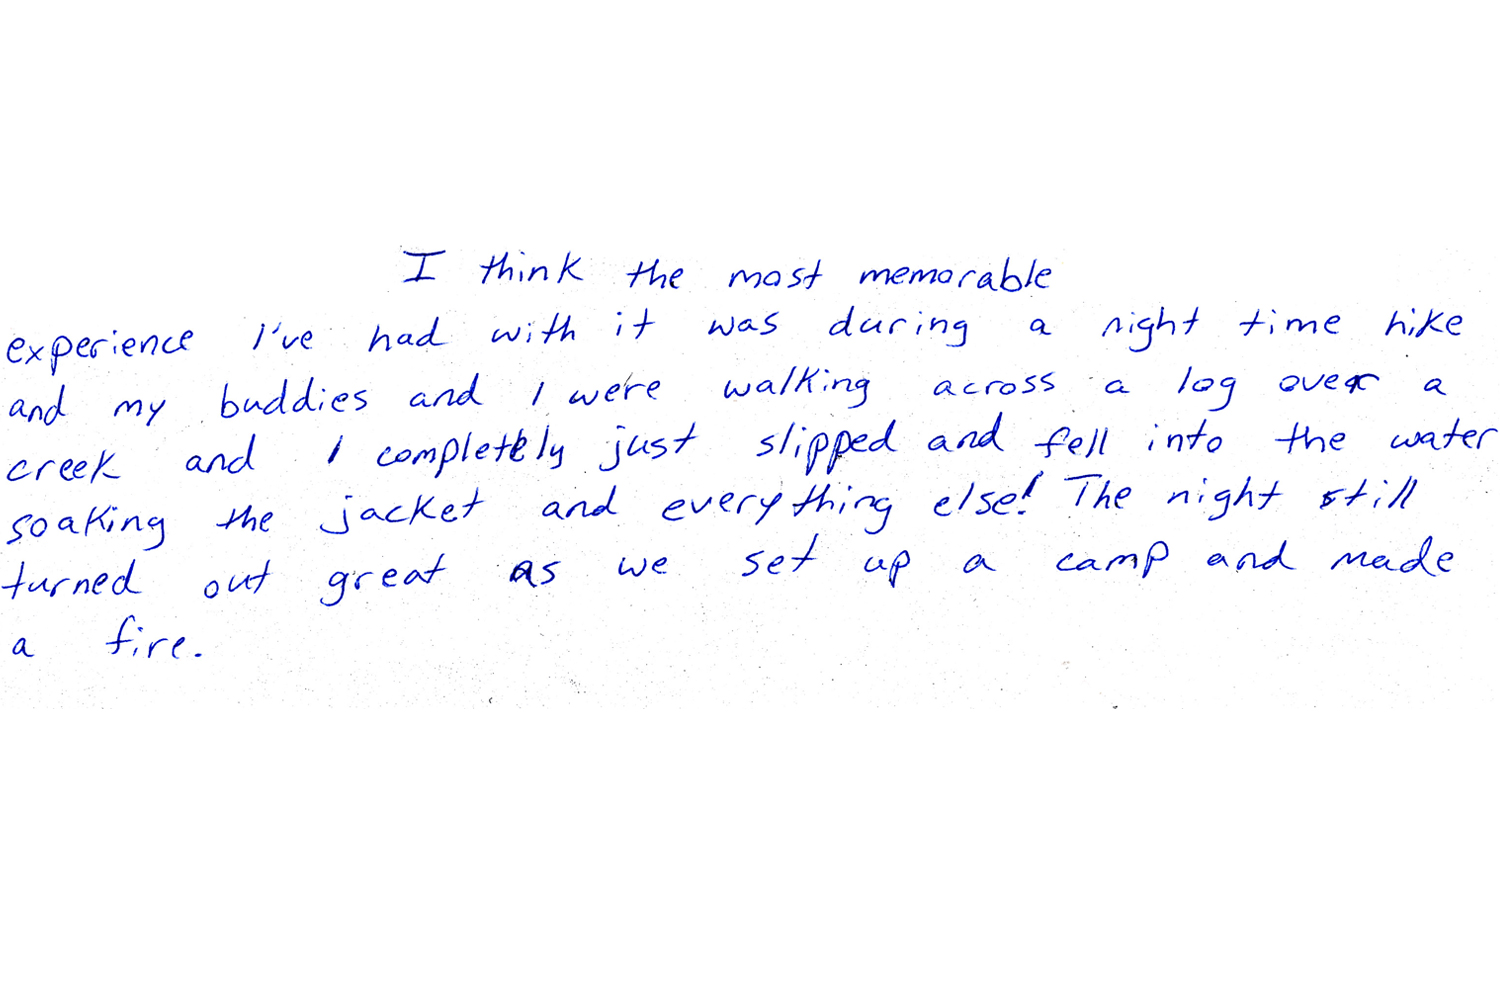 I think the most memorable
experience I've had with it was during a night time hike
and my buddies and I were walking across a log over a
creek and I completely just slipped and fell into the water
soaking the jacket and everything else! The night still
turned out great as we set up a camp and made
a fire.